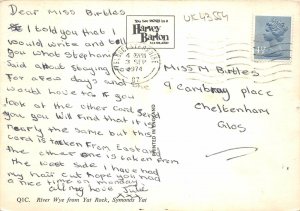 Dear Miss Birtles
As I told you that I
would write and tell
you what Stephanie
Said after staying here
for a few days and she
would leave us if you
look at the other card Sent
you you will find that it is
nearly the same but this
card is taken from East and
the other one is taken from
the West Side I have had
my hair cut hope you had
a nice time on monday
all my love Julie
Q1C. River Wye from Yat Rock, Symonds Yat
Harvey
Barton
3 SEP
1974
PRINTED IN ENGLAND
UK43554
Miss M Birtles
9 Cambray place
Cheltenham
Glos